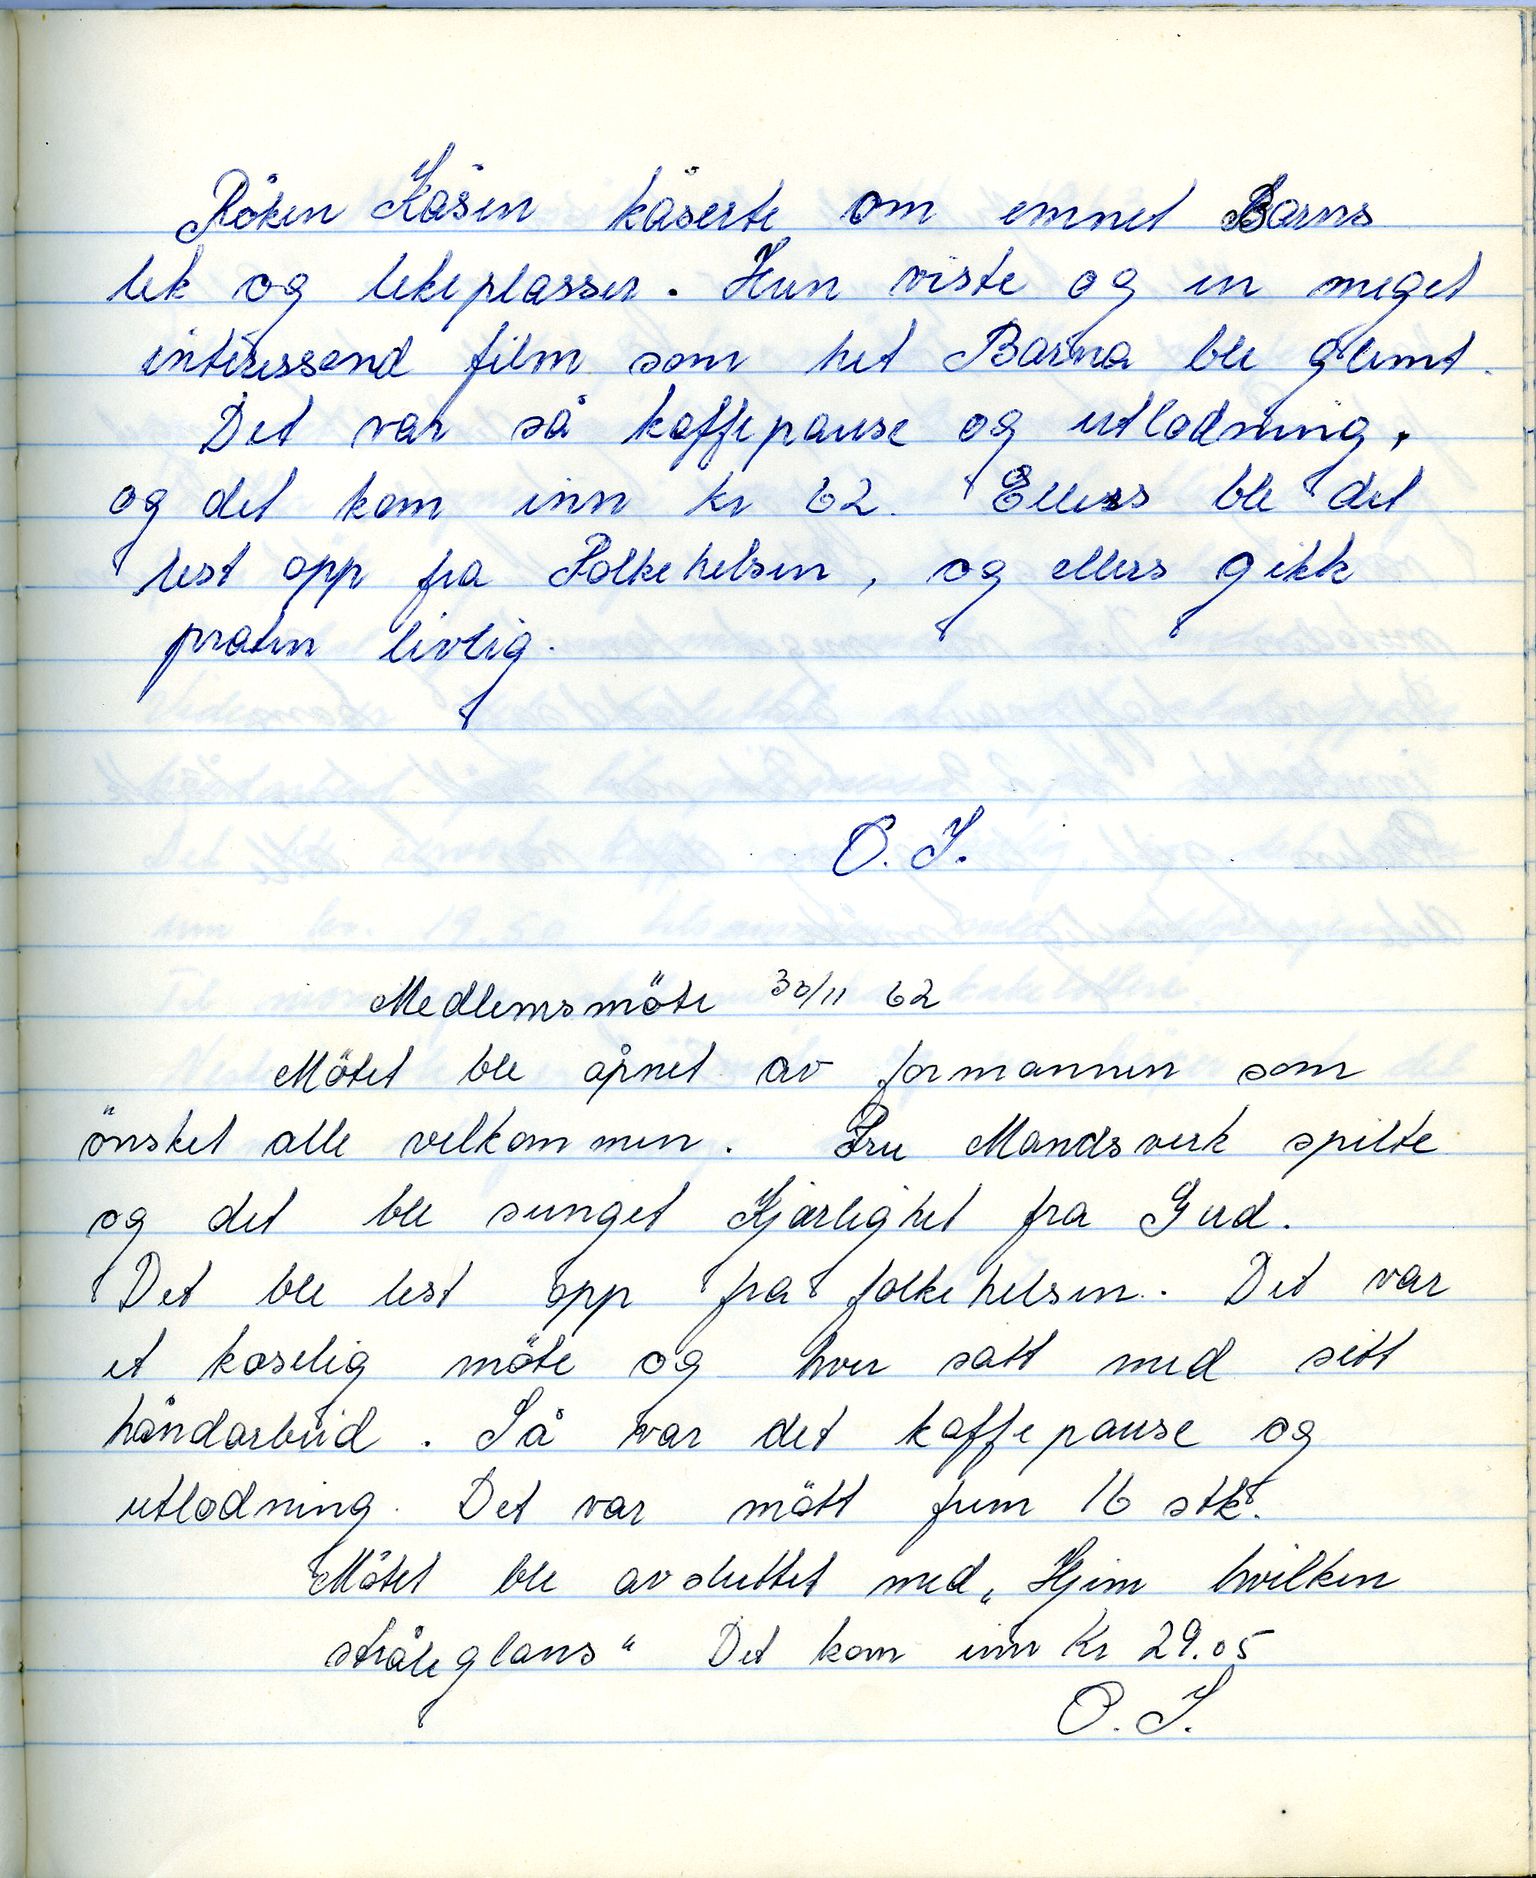 Röken Kåsen kåserte om emnet Barns
lek og lekeplasser. Hun viste og en meget
interessand film som het Barna ble glemt.
Det var så kaffepause og utlodning,
og det kom inn kr 62. Ellers ble det
lest opp fra Folkehelsen, og ellers gikk
praten livlig.
O. S.
Medlemsmöte 30/11 62
Mötet ble åpnet av formannen som
önsket alle velkommen. Fru Mandsverk spilte
og det ble sunget Kjærlighet fra Gud.
Det ble lest opp fra folkehelsen. Det var
et koselig möte og hver satt med sitt
håndarbeid. Så var det kaffepause og
utlodning. Det var mött frem 16 stk.
Mötet ble avsluttet med „Hjem hvilken
stråleglans“ Det kom inn Kr 29.05
O. S.